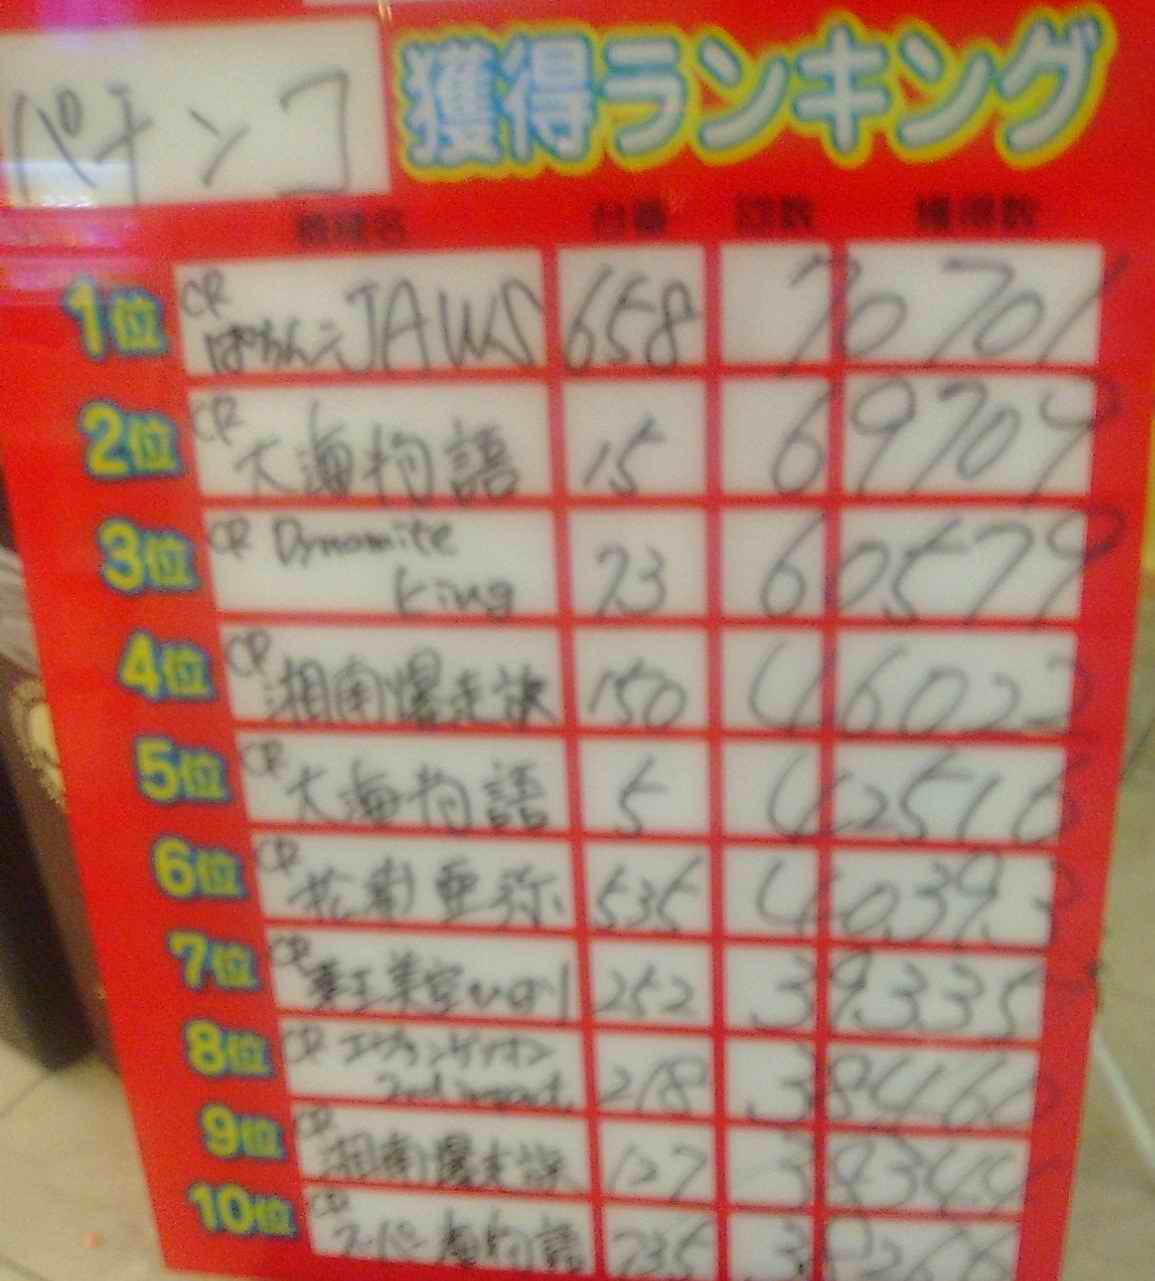 パチンコ 獲得ランキング
機種名 台番 回数 獲得数
1位 CR ぱちんこ JAWS 658 70701
2位 CR 大海物語 15 69709
3位 CR Dynamite King 73 60579
4位 CR 湘南爆走族 150 46022
5位 CR 大海物語 5 42516
6位 CR 松浦亜弥 535 40393
7位 CR 252 39335
8位 CR エヴァンゲリオン 2nd impact 218 38460
9位 CR 湘南爆走族 127
10位 CR スーパー海物語 235